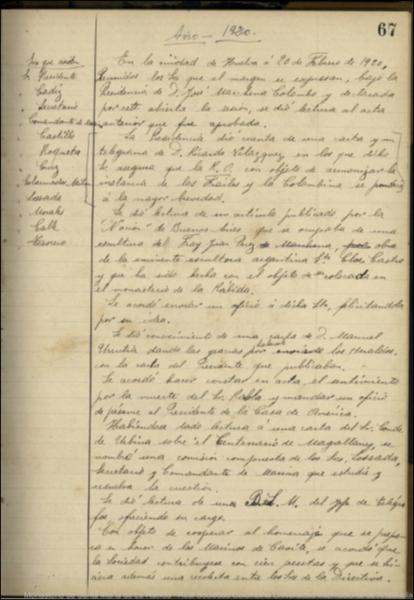 67
Año - 1920.
En la ciudad de Huelva á 20 de Febrero de 1920,
Reunidos los Sres que al margen se expresan, bajo la
Presidencia de D. José Marchena Colombo y declarada
por este abierta la sesión, se dió lectura al acta
anterior que fue aprobada.
Sr. Presidente
Cádiz
Secretario
Comandante de
Castillo
Roqueta
Ruiz
Gobernador Militar
Lossada
Morales
Calle
Terrero
La Presidencia dió cuenta de una carta y un
telegrama de D. Ricardo Velázquez en los que dicho
Sr. asegura que la R. O. con objeto de armonizar la
instancia de los Frailes y la Colombina se pondría
á la mayor brevedad.
Se dió lectura de un artículo publicado por la
"Nación" de Buenos Aires que se ocupaba de una
escultura del Fray Juan Perez de Marchena, obra
de la eminente escultora argentina Sta. Cloe Castro
y que ha sido hecho con el objeto de colocada en
el monasterio de la Rábida.
Se acordó enviar un oficio á dicha Sta. felicitandola
por su idea.
Se dió conocimiento de una carta de D. Manuel
Urrutia dando las gracias por los Heraldos.
con la carta del Presidente que publicaban.
Se acordó hacer constar en acta, el sentimiento
por la muerte del Sr. y mandar un oficio
de pésame al Presidente de la Casa de América.
Habiendose dado lectura á una carta del Sr. Conde
de Urbina sobre el Centenario de Magallanes, se
nombró una comisión compuesta de los Sres. Lossada,
Secretario y Comandante de Marina que estudie y
resuelva la cuestión.
Se dió lectura de una B. L. M. del Jefe de Telégra
fos ofreciendo su cargo.
Con objeto de cooperar al homenaje que se prepa
ra en honor de los Marinos de Cavite, se acordó que
la Sociedad contribuyese con cien pesetas y que se hi
ciera además una recolecta entre los Sres de la Directiva.